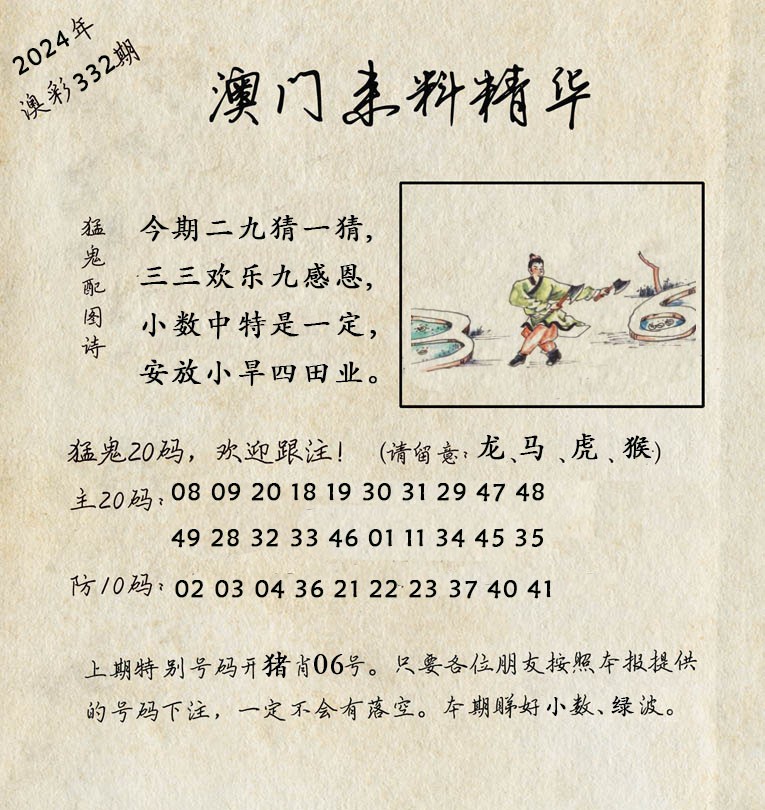 2024年
澳彩332期
澳门来料精华
猛鬼配图诗
今期二九猜一猜，
三三欢乐九感恩，
小数中特是一定，
安放小旱四田业。
猛鬼20码，欢迎跟注！（请留意：龙、马、虎、猴）
主20码：08 09 20 18 19 30 31 29 47 48
49 28 32 33 46 01 11 34 45 35
防10码：02 03 04 36 21 22 23 37 40 41
上期特别号码开猪肖06号。只要各位朋友按照本报提供
的号码下注，一定不会有落空。本期睇好小数、绿波。